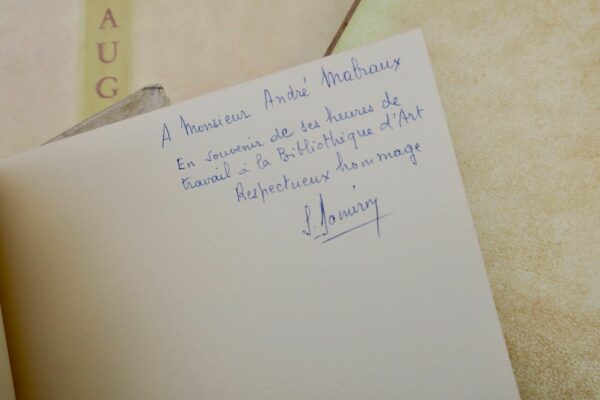 AUG
A Monsieur André Malraux
En souvenir de ses heures de
travail à la Bibliothèque d'Art
Respectueux hommage
S. Damiron